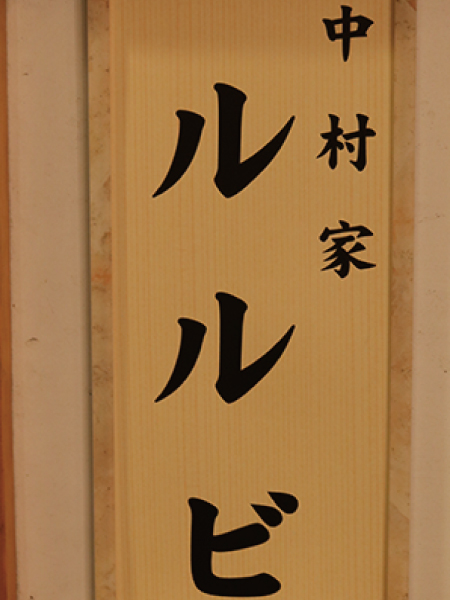 中村家
ルルビ